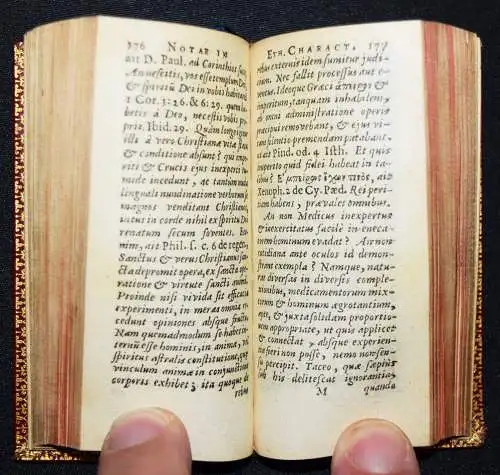 176 NOTAE IN
ait D. Paul. ad Corinthios
An nescitis, vos esse templum Dei,
& spiritū Dei in vobis habitare
1 Cor. 3: 26. & 6: 29. quem ha-
betis à Deo, nescitis
pri. Ibid. 29. Quàm longè igitur
illi à vero Christianæ vitæ
& conditione absunt? qui im-
periti & Crucis ejus inexperti
mode incedunt, ac tantum modo
linguali nundinatione verborum se
magnos venditant Christianos,
intus in corde nihil ex spiritu Dei
renatum secum foventes.
enim, ait Phil. s. c. 6 de regen.
Sanctus & verus Christianus
sancta depromit opera, ex sancta
ratione & virtute sancti animi.
Proinde nisi vivida sit efficacia
experimenti, in meras omnes
cedunt opiniones absque fructu.
Nam quemadmodum se habet in-
ternū esse hominis, in anima,
spiritus astralis constitutione, quæ
vinculum animæ in conjunctione
corporis exhibet; ita quoque de
rebus
ETH. CHARACT. 177
rebus externis idem sumitur judi-
cium. Nec fallit processus aut e-
ventus. Ideoque Græci ἄπειρον &
imperitum, tanquam inhabilem,
ab omni administratione operis
præcipui removebant, & ejus vi-
tam plenitio premendam putabant.
ait Pind. od. 4 Isth. Et quis
imperito quid fidei habeat in ta-
libus? Ἐμπειρος ἤγων τοῖος, ait
Xenoph. 2 de Cy. Pæd. Rei peri-
tiam habens, prævales omnibus.
An non Medicus inexpertus
& inexercitatus facilè in eneca-
torem hominum evadat? An non
quotidiana ante oculos id demon-
strant exempla? Namque, natu-
ras diversas in diversis comple-
xionibus, medicamentorum mixtu-
ram & hominum ægrotantium,
& juxta solidam proportio-
nem appropriate, ut quis applicet
& connectat, absque experien-
tia fieri non posse, nemo non sen-
su percipit. Taceo, quæ sæpius
sub his delitescat ignorantia,
M quando